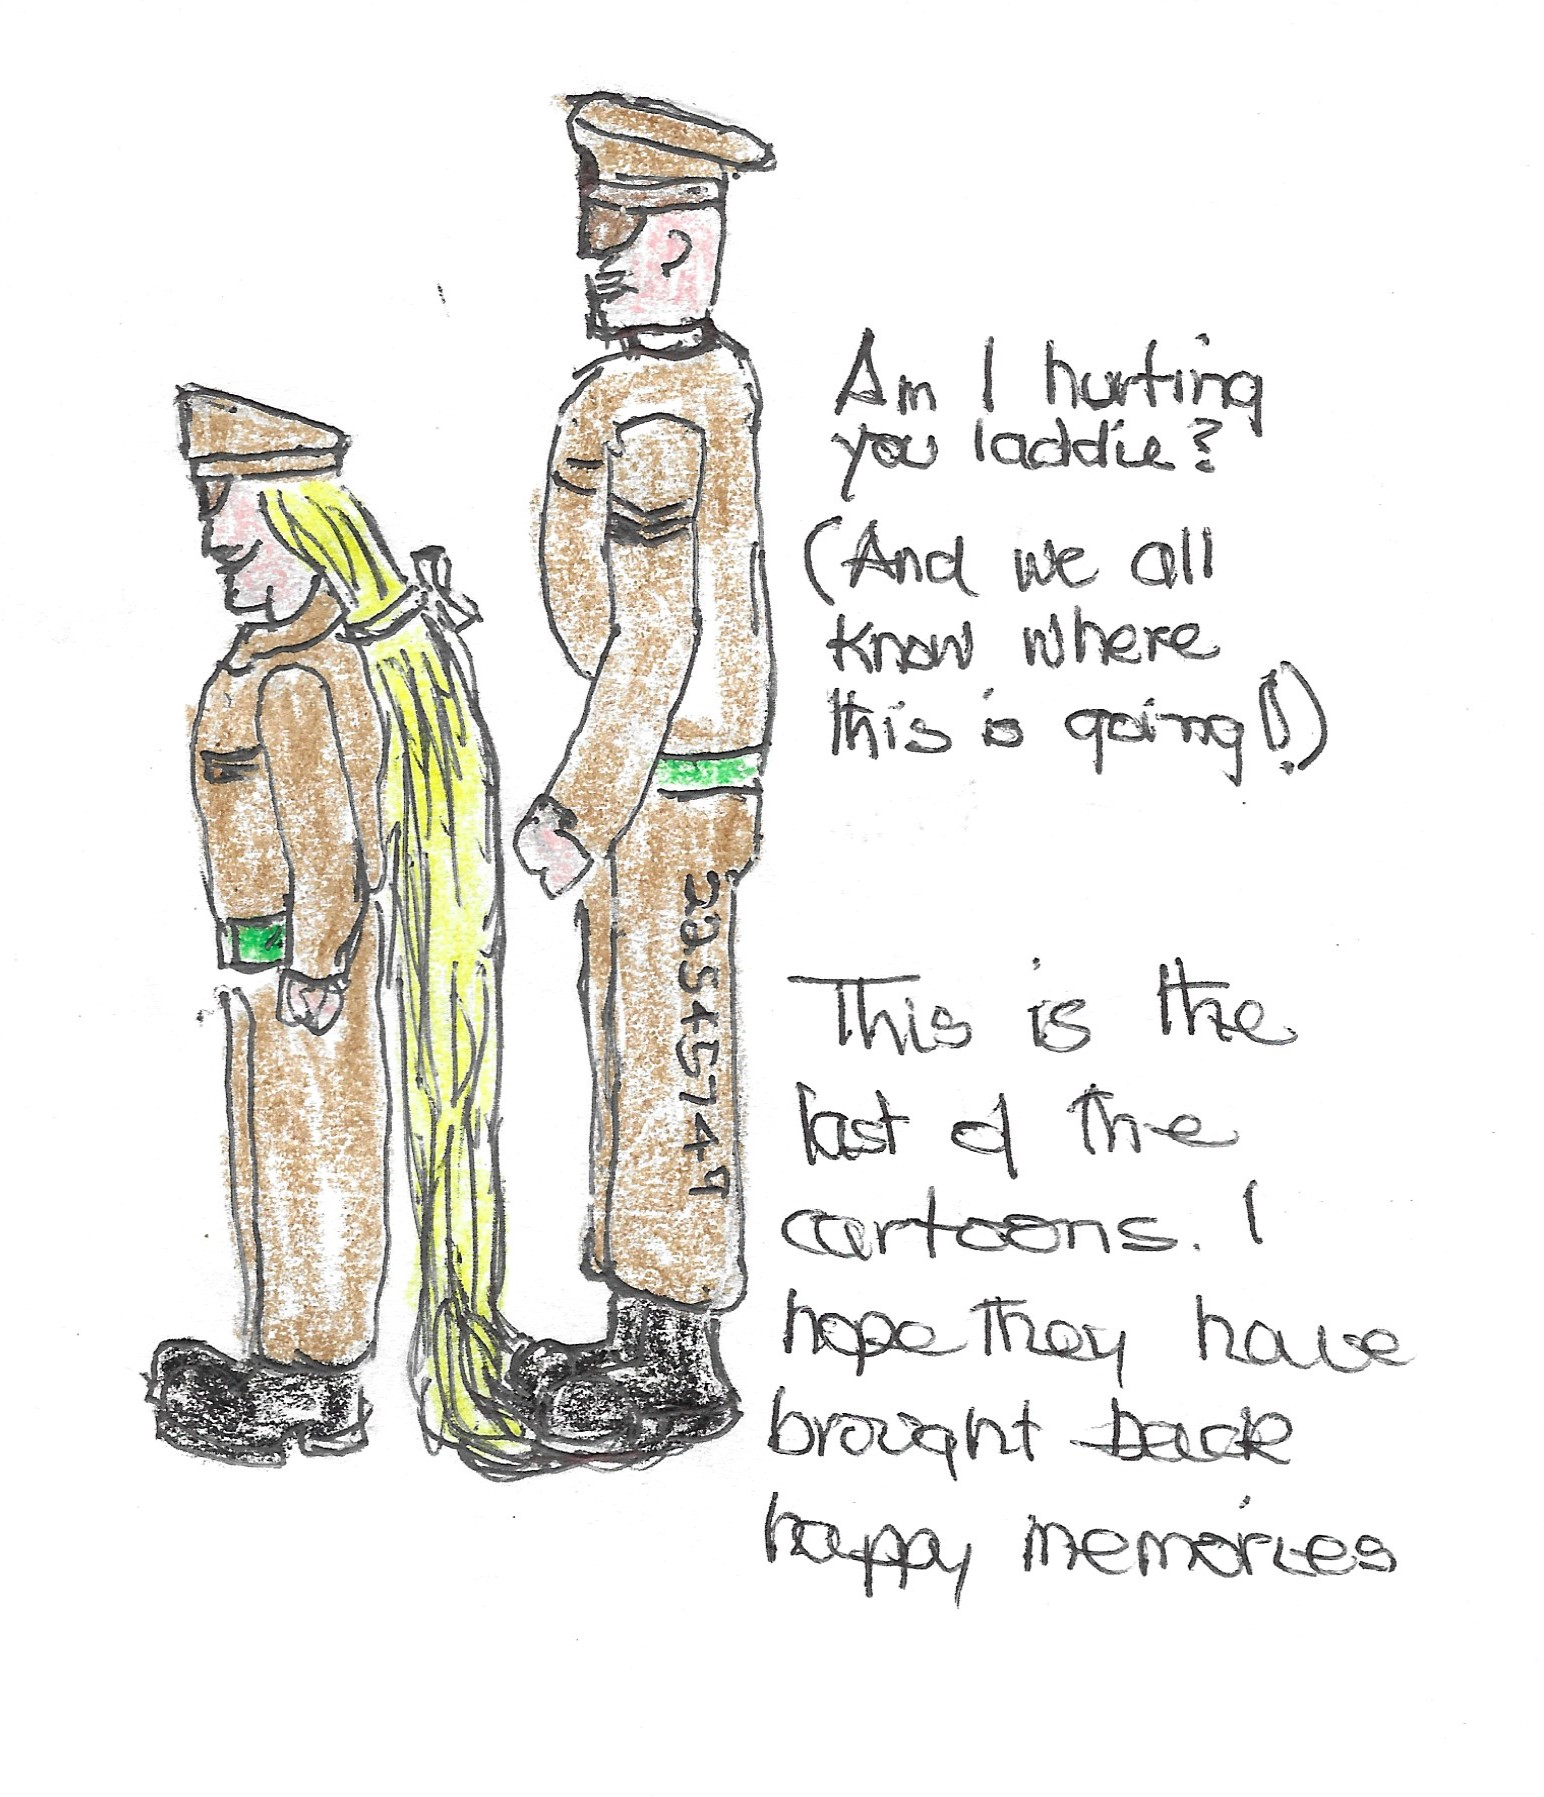 Am I hurting
you laddie?
(And we all
know where
this is going!!)
22545749
This is the
last of the
cartoons. I
hope they have
brought back
happy memories